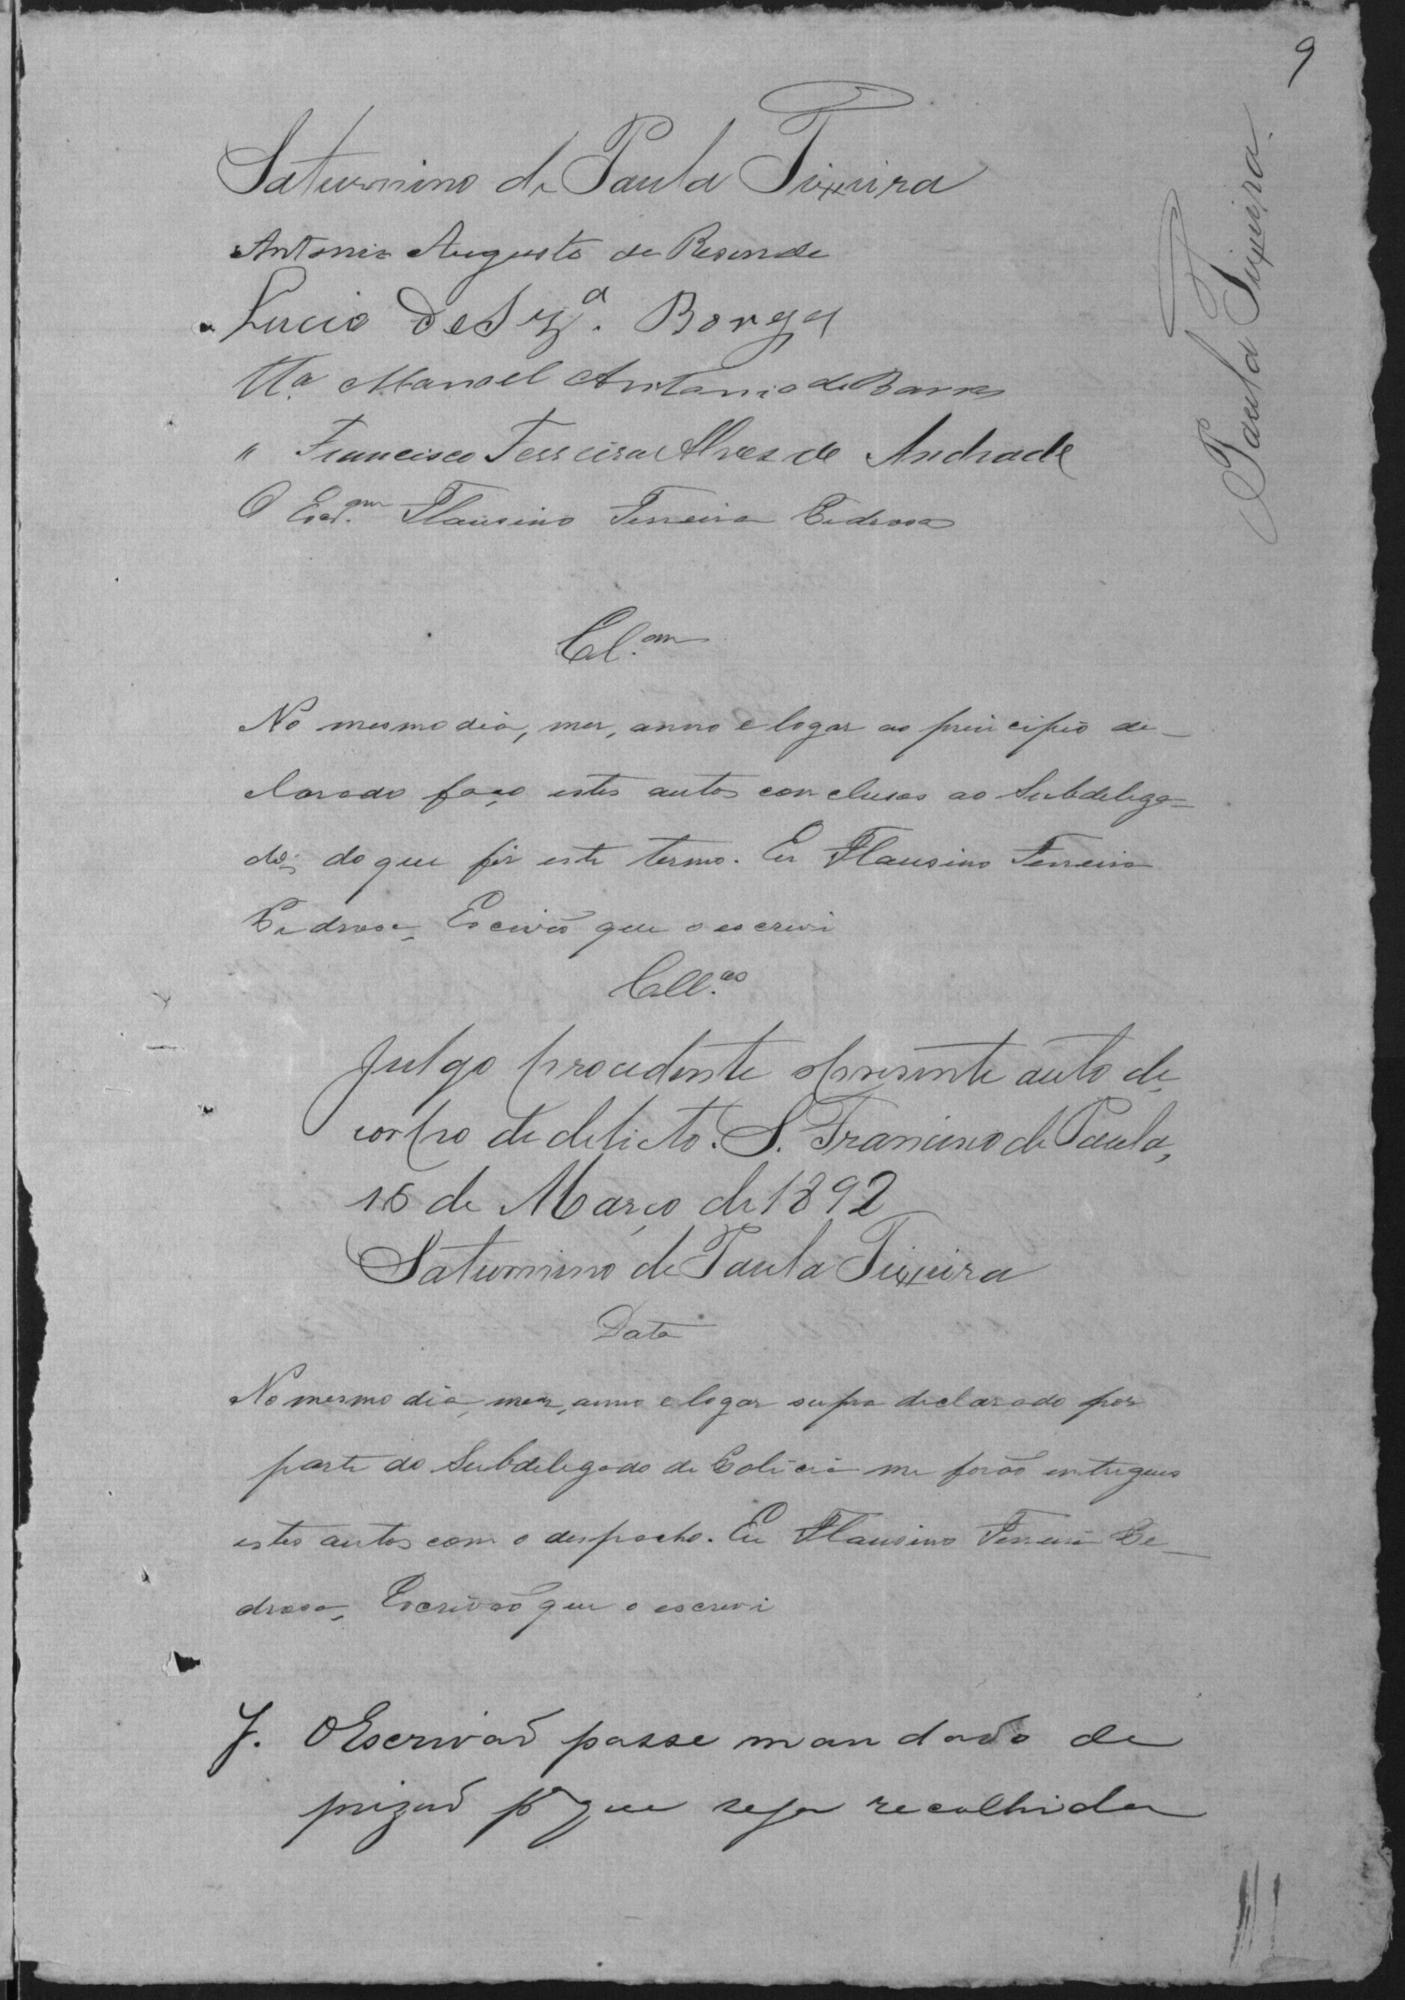 9
Paula Teixeira.
Saturnino de Paula Teixeira
Antonio Augusto de Resende
Lucio de Sz.ª Borges
Ttª. Manoel Antonio de Barros
" Francisco Ferreira Alves de Andrade
O Escr.am Flausino Ferreira Pedrosa
Cl.am
No mesmo dia, mez, anno e logar ao principio de-
clarado faço estes autos conclusos ao Subdelega-
do; do que fiz este termo. Eu Flausino Ferreira
Pedrosa, Escivão que o escrevi
Cll.os
Julgo procedente o presente auto de
corpo de delicto. S. Francisco de Paula,
15 de Março de 1892
Saturnino de Paula Teixeira
Data
No mesmo dia, mez, anno e logar supra declarado por
parte do Subdelegado de Policia me forão entregues
estes autos com o despacho. Eu Flausino Ferreira Pe-
drosa, Escrivão que o escrevi
J. O Escrivaõ passe mandado de
prizaõ pª que seja recolhida